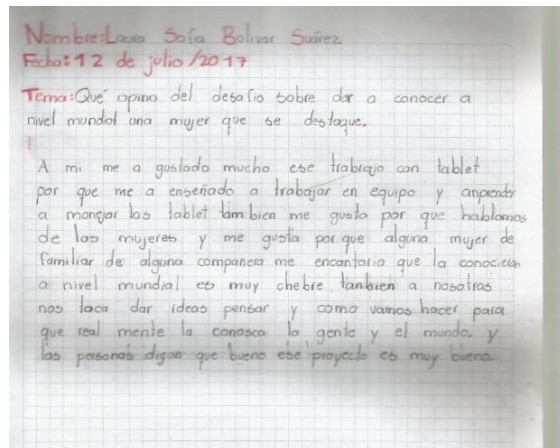 Nombre:Laura Sofia Bolivar Suárez
Fecha:12 de julio/2017
Tema:Qué opino del desafio sobre dar a conocer a
nivel mundol una mujer que se destaque.
A mi me a gustado mucho ese trabrajo con tablet
por que me a enseñado a trabajar en equipo y anprender
a manejar las tablet tambien me gusta por que hablamos
de las mujeres y me gusta por que alguna mujer de
familiar de alguna compañera me encantaria que la conocieran
a nivel mundial es muy chebre tanbien a nosotras
nos toca dar ideas pensar y como vamos hacer para
que real mente la conosca la gente y el mundo. y
las personas digan que bueno ese proyecto es muy bueno.